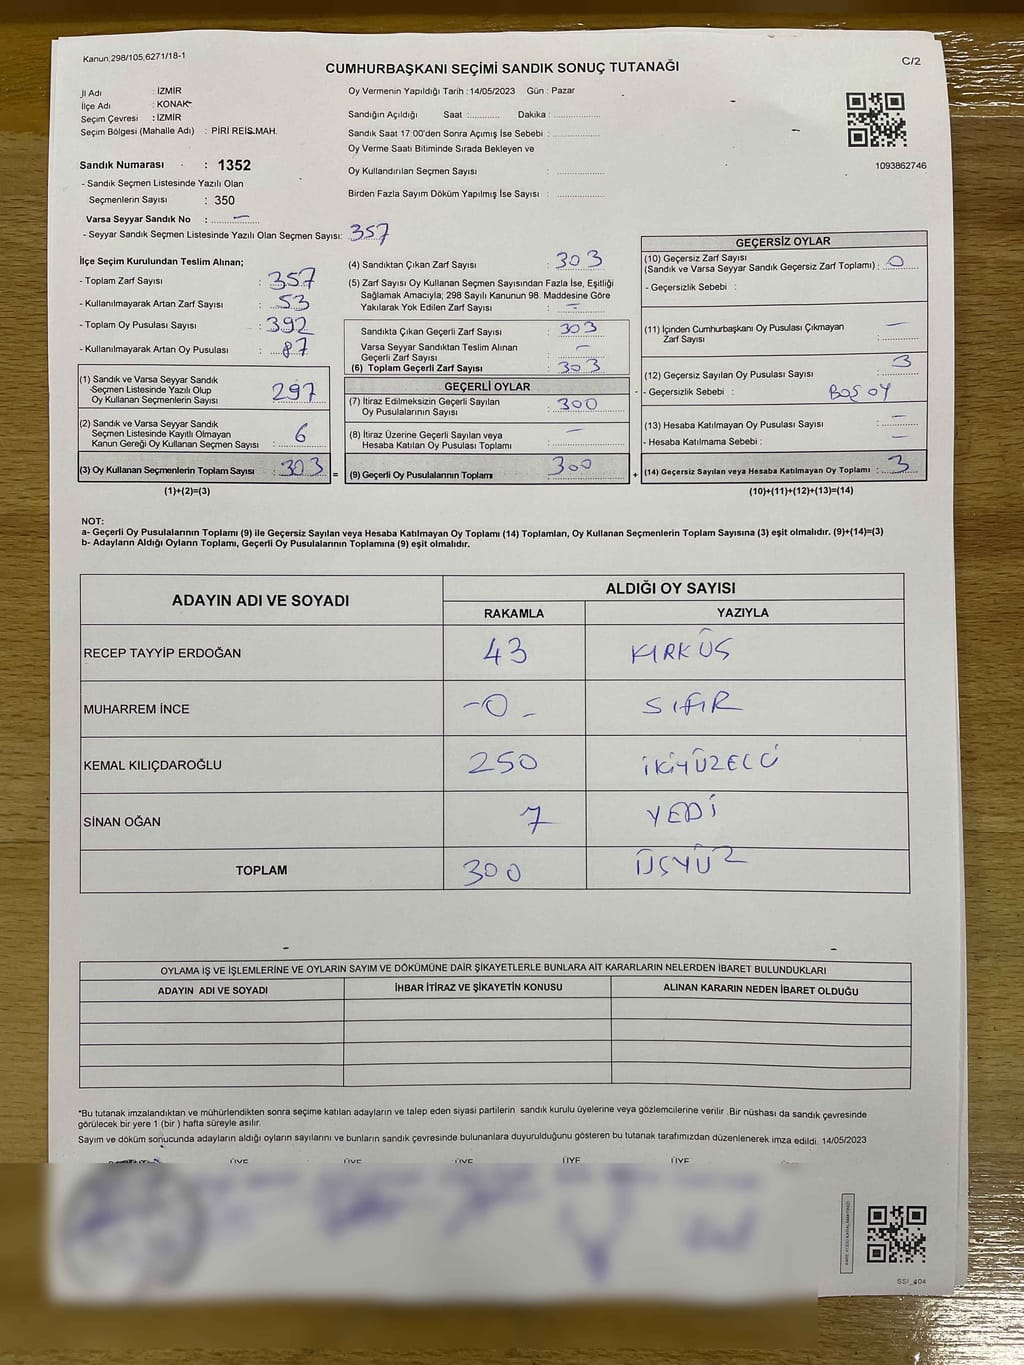 Kanun:298/105,6271/18-1
CUMHURBAŞKANI SEÇİMİ SANDIK SONUÇ TUTANAĞI
C/2
İl Adı : İZMİR
İlçe Adı : KONAK
Seçim Çevresi : İZMİR
Seçim Bölgesi (Mahalle Adı) : PİRİ REİS MAH.
Oy Vermenin Yapıldığı Tarih :14/05/2023 Gün : Pazar
Sandığın Açıldığı Saat :........... Dakika :...............
Sandık Saat 17:00'den Sonra Açımış İse Sebebi : ...............
Oy Verme Saati Bitiminde Sırada Bekleyen ve
Oy Kullandırılan Seçmen Sayısı : ...............
Birden Fazla Sayım Döküm Yapılmış İse Sayısı : ...............
1093862746
Sandık Numarası : 1352
- Sandık Seçmen Listesinde Yazılı Olan
Seçmenlerin Sayısı : 350
Varsa Seyyar Sandık No : —
- Seyyar Sandık Seçmen Listesinde Yazılı Olan Seçmen Sayısı: 357
İlçe Seçim Kurulundan Teslim Alınan;
- Toplam Zarf Sayısı : 357
- Kullanılmayarak Artan Zarf Sayısı : 53
- Toplam Oy Pusulası Sayısı : 392
- Kullanılmayarak Artan Oy Pusulası : 87
(1) Sandık ve Varsa Seyyar Sandık
Seçmen Listesinde Yazılı Olup
Oy Kullanan Seçmenlerin Sayısı : 297
(2) Sandık ve Varsa Seyyar Sandık
Seçmen Listesinde Kayıtlı Olmayan
Kanun Gereği Oy Kullanan Seçmen Sayısı : 6
(3) Oy Kullanan Seçmenlerin Toplam Sayısı : 303
(1)+(2)=(3)
(4) Sandıktan Çıkan Zarf Sayısı : 303
(5) Zarf Sayısı Oy Kullanan Seçmen Sayısından Fazla İse, Eşitliği
Sağlamak Amacıyla; 298 Sayılı Kanunun 98. Maddesine Göre
Yakılarak Yok Edilen Zarf Sayısı : —
Sandıkta Çıkan Geçerli Zarf Sayısı : 303
Varsa Seyyar Sandıktan Teslim Alınan
Geçerli Zarf Sayısı : —
(6) Toplam Geçerli Zarf Sayısı : 303
GEÇERLİ OYLAR
(7) İtiraz Edilmeksizin Geçerli Sayılan
Oy Pusulalarının Sayısı : 300
(8) İtiraz Üzerine Geçerli Sayılan veya
Hesaba Katılan Oy Pusulası Toplamı : —
= (9) Geçerli Oy Pusulalarının Toplamı : 300
GEÇERSİZ OYLAR
(10) Geçersiz Zarf Sayısı
(Sandık ve Varsa Seyyar Sandık Geçersiz Zarf Toplamı) : 0
- Geçersizlik Sebebi :
(11) İçinden Cumhurbaşkanı Oy Pusulası Çıkmayan
Zarf Sayısı : —
(12) Geçersiz Sayılan Oy Pusulası Sayısı : 3
- Geçersizlik Sebebi : BOŞ OY
(13) Hesaba Katılmayan Oy Pusulası Sayısı : —
- Hesaba Katılmama Sebebi : —
+ (14) Geçersiz Sayılan veya Hesaba Katılmayan Oy Toplamı : 3
(10)+(11)+(12)+(13)=(14)
NOT:
a- Geçerli Oy Pusulalarının Toplamı (9) ile Geçersiz Sayılan veya Hesaba Katılmayan Oy Toplamı (14) Toplamları, Oy Kullanan Seçmenlerin Toplam Sayısına (3) eşit olmalıdır. (9)+(14)=(3)
b- Adayların Aldığı Oyların Toplamı, Geçerli Oy Pusulalarının Toplamına (9) eşit olmalıdır.
ADAYIN ADI VE SOYADI ALDIĞI OY SAYISI
RAKAMLA YAZIYLA
RECEP TAYYİP ERDOĞAN 43 KIRKÜÇ
MUHARREM İNCE -0- SIFIR
KEMAL KILIÇDAROĞLU 250 İKİYÜZELLİ
SİNAN OĞAN 7 YEDİ
TOPLAM 300 ÜÇYÜZ
OYLAMA İŞ VE İŞLEMLERİNE VE OYLARIN SAYIM VE DÖKÜMÜNE DAİR ŞİKAYETLERLE BUNLARA AİT KARARLARIN NELERDEN İBARET BULUNDUKLARI
ADAYIN ADI VE SOYADI İHBAR İTİRAZ VE ŞİKAYETİN KONUSU ALINAN KARARIN NEDEN İBARET OLDUĞU
*Bu tutanak imzalandıktan ve mühürlendikten sonra seçime katılan adayların ve talep eden siyasi partilerin sandık kurulu üyelerine veya gözlemcilerine verilir .Bir nüshası da sandık çevresinde
görülecek bir yere 1 (bir ) hafta süreyle asılır.
Sayım ve döküm sonucunda adayların aldığı oyların sayılarını ve bunların sandık çevresinde bulunanlara duyurulduğunu gösteren bu tutanak tarafımızdan düzenlenerek imza edildi. 14/05/2023
ÜYE ÜYE ÜYE ÜYE ÜYE
SSI_404